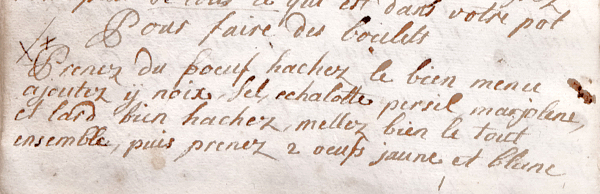 de tous ce qui est dans votre pot
Pour faire des boulets
Prenez du boeuf hachez le bien menu
ajoutez y noix, sel, echalotte persil marjolene,
et lard bien hachez, mellez bien le tout
ensemble, puis prenez 2 oeufs jaune et blanc